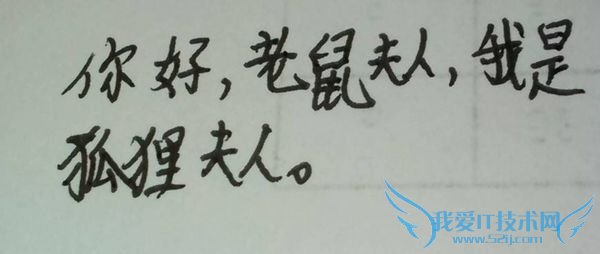 你好,老鼠夫人,我是
狐狸夫人。
我爱IT技术网
www.52ij.com